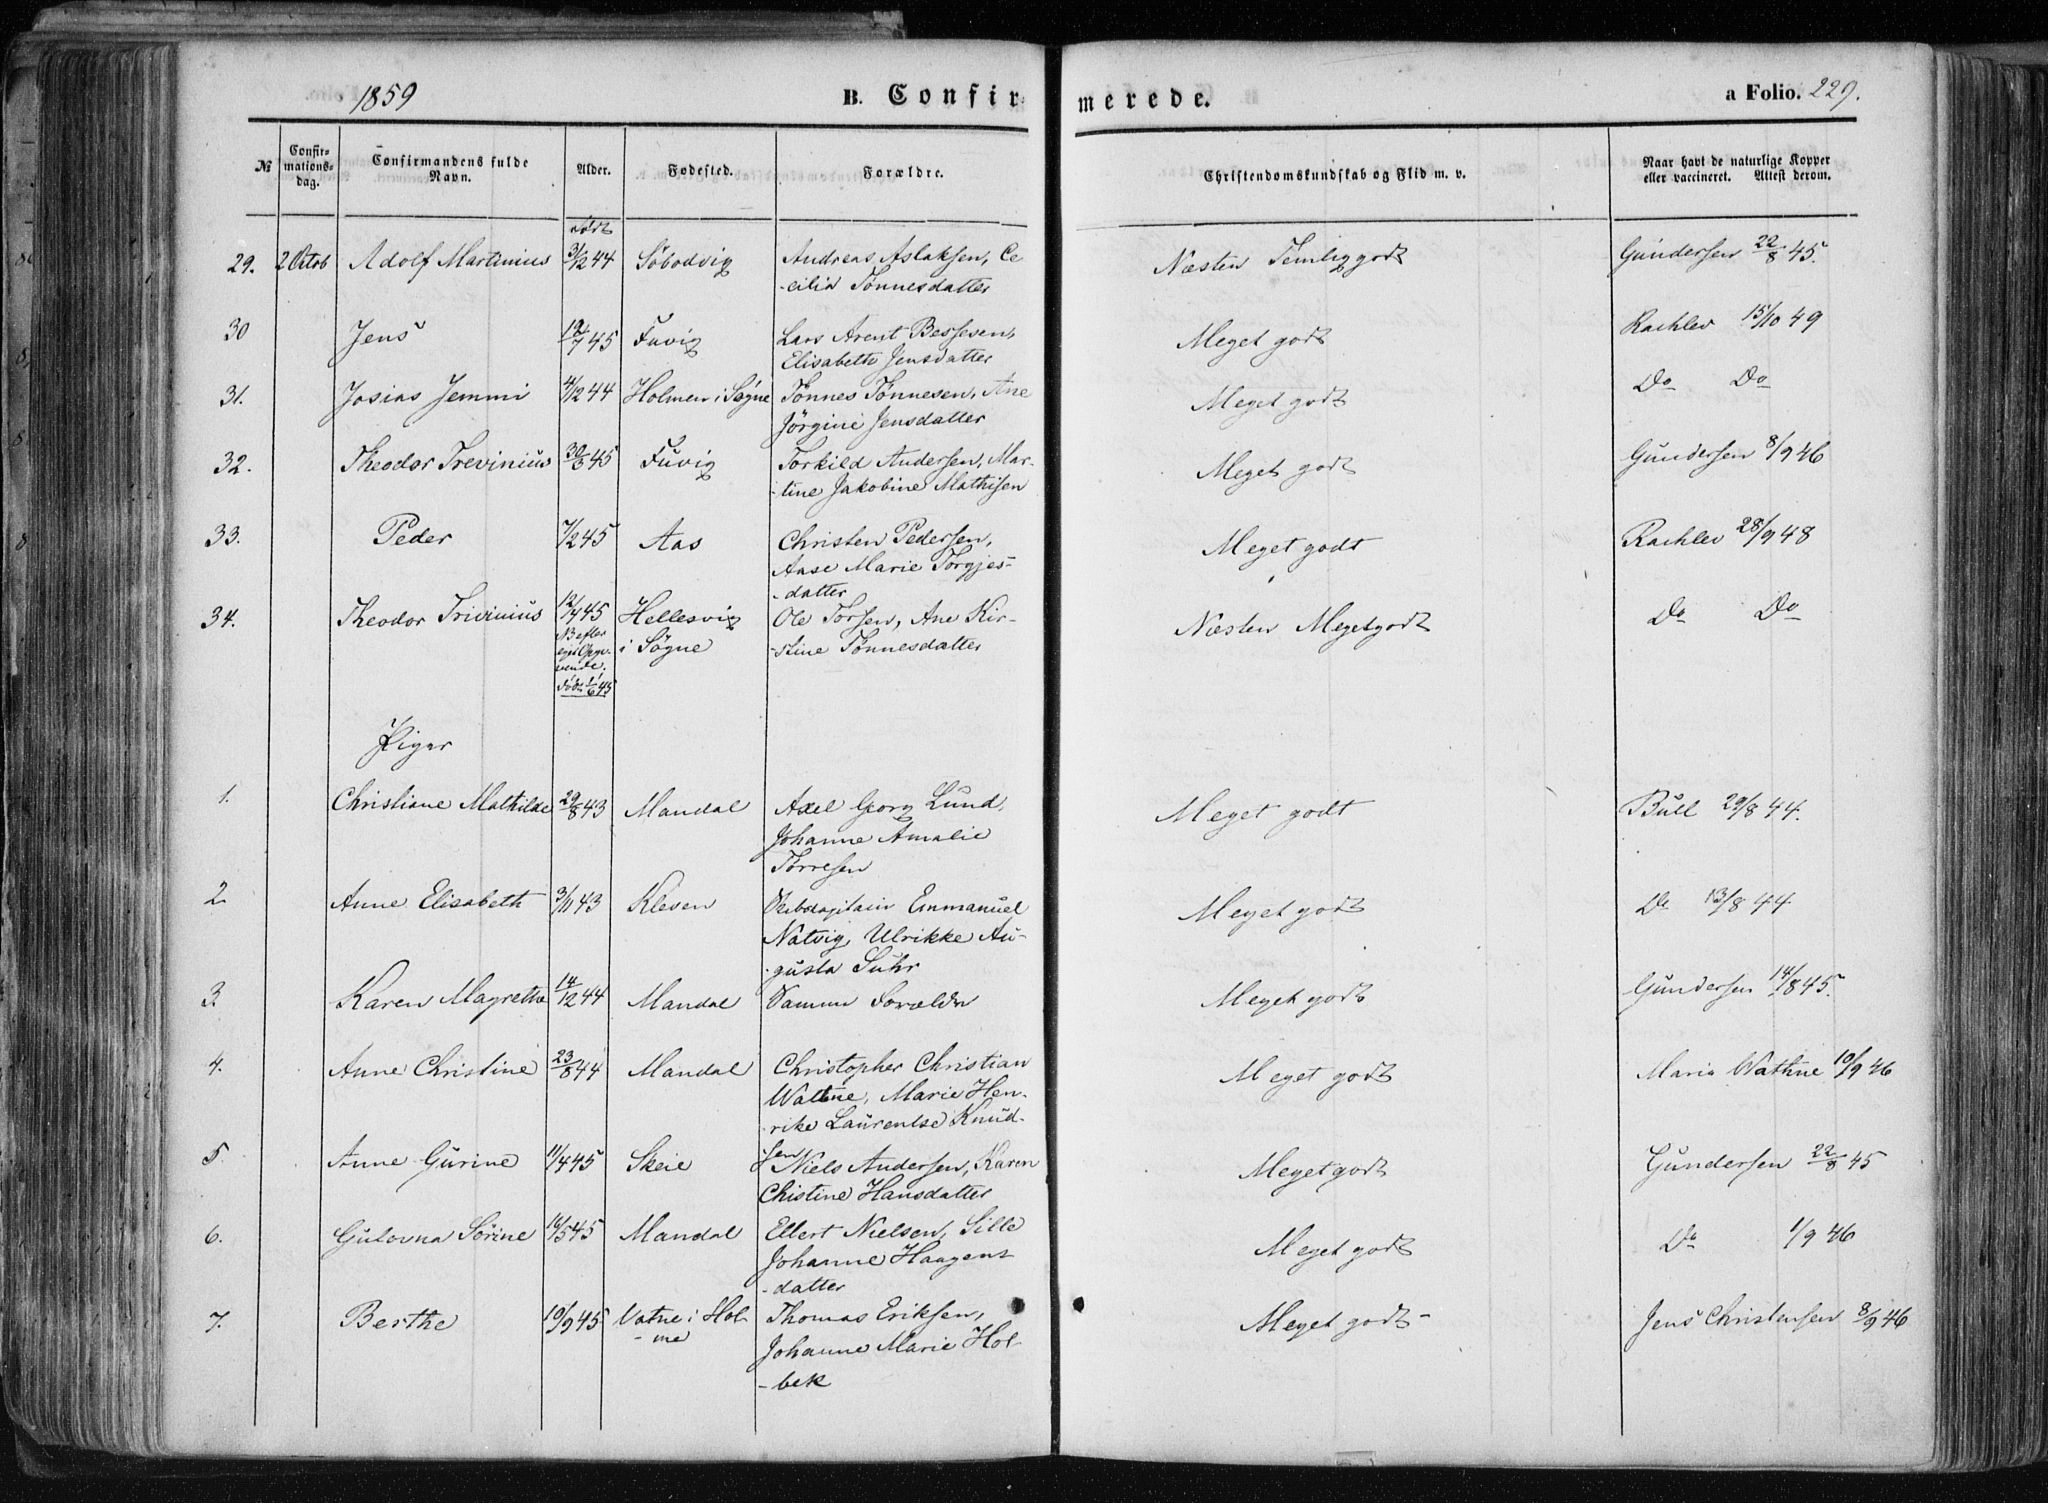 1859 B. Confirmerede. a Folio. 229.
№ Confirmationsdag. Confirmandens fulde Navn. Alder. Fødested. Forældre. Christendomskundskab og Flid m. v. Naar havt de naturlige Kopper eller vaccineret. Attest derom.
født
29. 2 Octob Adolf Martinius 3/12 44 Andreas Aslaksen, Ce- Næsten Temlig godt Gundersen 22/8 45.
-cilia Tønnesdatter
30 Jens 12/7 45 Fuvig Lars Arent Bessesen, Meget godt 15/10 49
Elisabeth Jensdatter
31. Josias Jemmi 4/12 44 Holmen i Søgne Tønnes Tønnesen, Ane Meget godt Do Do
Jørgine Jensdatter
32. Theodor Trevinius 30/6 45 Fuvig Torkild Andersen, Mar- Meget godt Gundersen 8/9 46
-tine Jakobine Mathisen
33. Peder 7/2 45 Aas Christen Pedersen, Meget godt 28/9 48
Aase Marie Torgjes-
-datter
34. Theodor Trivinius 12/4 45 Hellesvig Ole Torsen, Ane Kir- Næsten Meget godt Do Do
NB efter i Søgne -stine Tønnesdatter
født 1/6 45
Piger
1. Christiane Mathilde 29/8 43 Mandal Axel Georg Lund, Meget godt Bull 29/8 44.
Johanne Amalie
Torresen
2. Anne Elisabeth 3/11 43 Kleven Skibscapitain Emmanuel Meget godt Do 13/8 44
Natvig, Ulrikke Au-
-gusta Suhr
3. Karen Magrethe 14/12 44 Mandal Samme Forældre Meget godt Gundersen 14/8 45.
4. Anne Christine 23/8 44 Mandal Christopher Christian Meget godt Maria Wathne 10/9 46
Watne, Marie Hen-
-rike Laurentse Knud-
5. Anne Gurine 11/4 45 Skeie sen Niels Andersen, Karen Meget godt Gundersen 22/8 45
Chistine Hansdatter
6. Gulovna Sørine 16/5 45 Mandal Ellert Nielsen, Sille Meget godt Do 1/9 46
Johanne Haagens
-datter
7. Berthe 10/9 45 Vatne i Hol- Thomas Eriksen, Meget godt - Jens Christensen 8/9 46
-me Johanne Marie Hol-
-bek